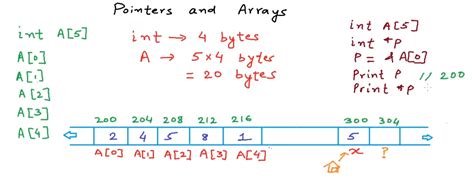 Pointers and Arrays
int A[5]
A[0]
A[1]
A[2]
A[3]
A[4]
int → 4 bytes
A → 5 x 4 bytes
= 20 bytes
int A[5]
int *P
P = &A[0]
Print P // 200
Print *P
200 204 208 212 216 300 304
2 4 5 8 1 5
A[0] A[1] A[2] A[3] A[4] x ?